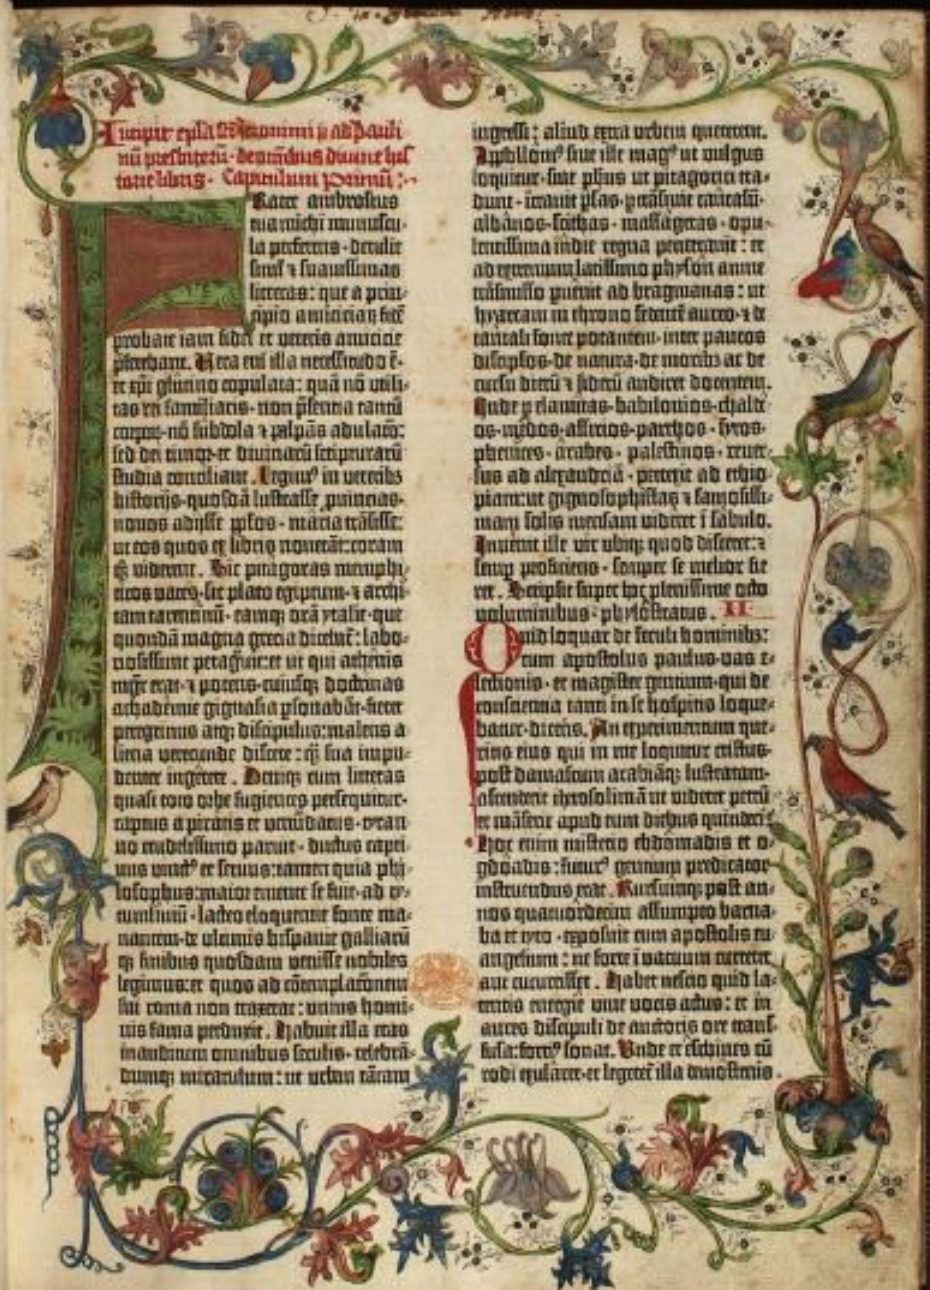 Incipit epl̄a s̄cti iheronimi ad pauli-
nū presbiterū · de om̄ibus diuine his-
torie libris · Capitulum Primū :·
Frater ambrosius
tua michi munuscu-
la perferens · detulit
simul ⁊ suauissimas
litteras : que a prin-
cipio amicicie
probate iam fidei et veteris amicicie
. Vera eni illa necessitudo ē ·
et xp̄i glutino copulata : quā nō vtili-
tas rei familiaris · non p̄sentia tantū
corporū · nō subdola ⁊ palpās adulacō :
sed dei timor · et diuinarū scripturarū
studia conciliant . Legim⁹ in veteribꝫ
historijs · quosdā lustrasse ꝓuincias ·
nouos adijsse pp̄los · maria trāsisse :
ut eos quos ex libris nouerāt : coram
qꝫ viderent . Sic pitagoras memphi-
ticos vates · sic plato egiptum · ⁊ archi-
tam tarentinū · eamqꝫ orā ytalie · que
quondā magna grecia dicebat̄ : labo-
riosissime peragūit : et ut qui athenis
mḡr erat · ⁊ potens · cuiusqꝫ doctrinas
achademie gignasia ꝑsonabāt · fieret
peregrinus atqꝫ discipulus : malens a-
liena verecunde discere : qz̄ sua impu-
denter ingerere . Deniqꝫ cum litteras
quasi toto orbe fugientes persequitur ·
captus a piratis et venūdatus · tyran-
no crudelissimo paruit · ductus capti-
uus vinct⁹ et seruus : tamen quia phi-
losophus : maior emente se fuit · ad ty-
tumliuiū · lacteo eloquentie fonte ma-
nantem · de vltimis hispanie galliarū
qꝫ finibus quosdam venisse nobiles
legimus : et quos ad cōtemplacōnem
sui roma non traxerat : vnius homi-
nis fama perduxit . Habuit illa etas
inauditum omnibus seculis · celebrā-
dumqꝫ miraculum : ut urbem tātam
ingressi : aliud extra urbem quererent .
Appollonī⁹ siue ille mag⁹ ut vulgus
loquitur · siue ph̄us ut pitagorici tra-
dunt · ītrauit p̄sas · ꝑtrāsiuit caucasū ·
albanos · scithas · massagetas · opu-
lentissima indie regna penetrauit : et
ad extremum latissimo physon amne
trāsmisso puenit ad bragmanas : ut
hyarcam in throno sedentē aureo · ⁊ de
tantali fonte potantem · inter paucos
discip̄los · de natura · de moribꝫ ac de
cursu dierū ⁊ siderū audiret docentem .
Inde ꝑ elamitas · babilonios · chalde-
os · medos · assirios · parthos · syros ·
phenices · arabes · palestinos · reuer-
sus ad alexandriā · perrexit ad ethio-
piam : ut gignosophistas ⁊ famosissi-
mam solis mensam videret ī sabulo .
Inuenit ille vir ubiqꝫ quod disceret : ⁊
semꝑ proficiens · semper se melior fie-
ret . Scripsit super hoc plenissime octo
voluminibus · phylostratus . II
Quid loquar de seculi hominibꝫ :
cum apostolus paulus · vas e-
lectionis · et magister gentium · qui de
conscientia tanti in se hospitis loque-
batur · dicēs . An experimentum que-
ritis eius qui in me loquitur cristus ·
post damascum arabiāqꝫ lustratam ·
ascenderit iherosolimā ut videret petrū
et māserit apud eum diebus quindecī .
Hoc enim misterio ebdomadis et o-
gdoadis : futur⁹ gentium predicator
instruendus erat . Rursumqꝫ post an-
nos quatuordecim assumpto barna-
ba et tyto · exposuit cum apostolis eu-
angelium : ne forte ī vacuum curreret
aut cucurrisset . Habet nescio quid la-
tentis energie viue vocis actus : et in
aures discipuli de auctoris ore trans-
fusa : forti⁹ sonat . Unde et eschines cū
rodi exularet · et legeret̄ illa demostenis